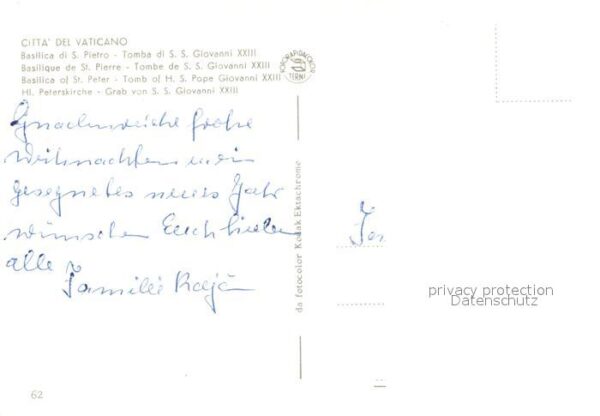 CITTA' DEL VATICANO
Basilica di S. Pietro - Tomba di S. S. Giovanni XXIII
Basilique de St. Pierre - Tombe de S. S. Giovanni XXIII
Basilica of St. Peter - Tomb of H. S. Pope Giovanni XXIII
Hl. Peterskirche - Grab von S. S. Giovanni XXIII
TERNI
Gnadenreiche frohe
Weihnachten u. ein
gesegnetes neues Jahr
wünschen Euch lieben
alle
Familie
da fotocolor Kodak Ektachrome
privacy protection
Datenschutz
62